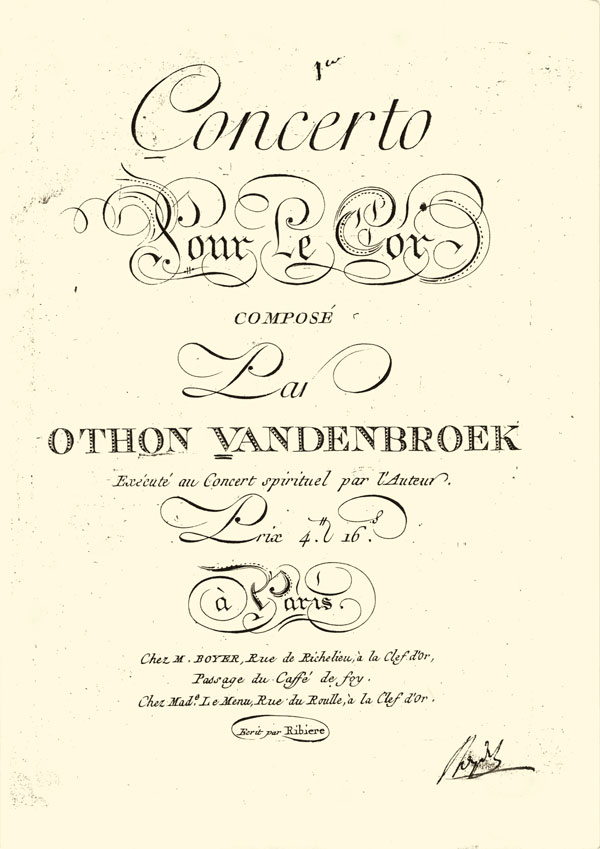 1er
Concerto
Pour Le Cor
COMPOSÉ
Par
OTHON VANDENBROEK
Exécuté au Concert spirituel par l'Auteur.
Prix 4.₶ 16.s
à Paris.
Chez M. BOYER, Rue de Richelieu, à la Clef d'Or,
Passage du Caffé de foy.
Chez Mad.e Le Menu, Rue du Roulle, à la Clef d'Or.
Ecrit par Ribiere